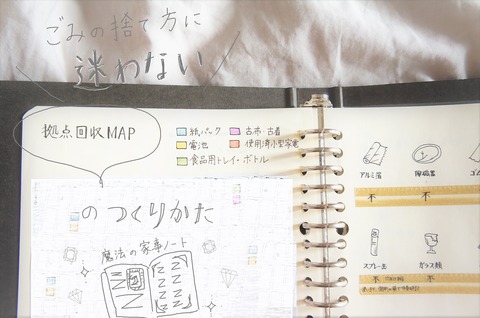 ごみの捨て方に
迷わない
拠点回収MAP
紙パック
古布・古着
電池
使用済小型家電
食品用トレイ・ボトル
の つくりかた
魔法の家事ノート
アルミ箔
陶磁器
ゴム
不
不
スプレー缶
ガラス類